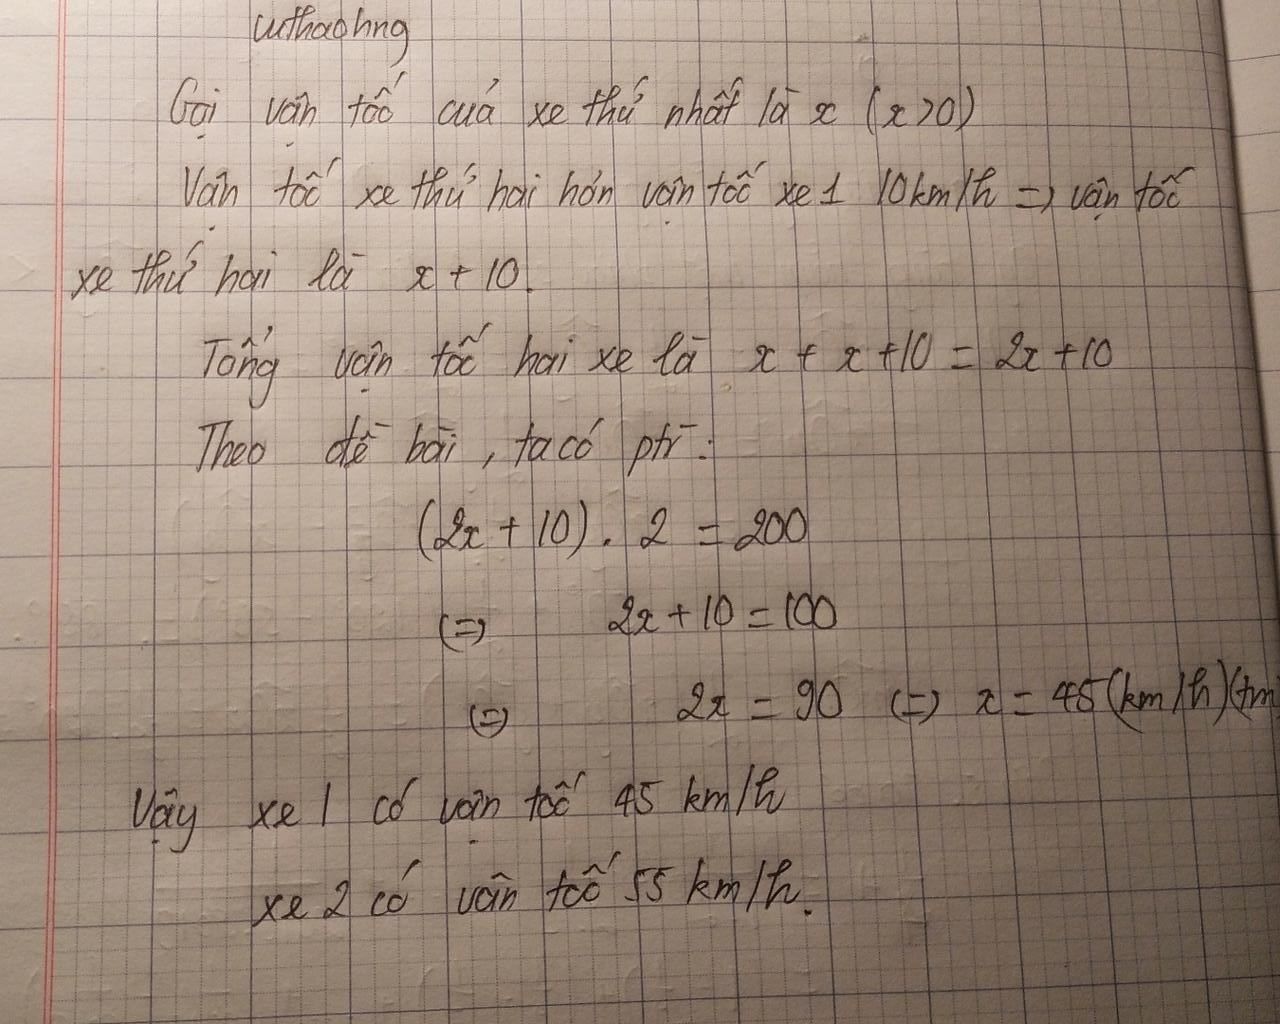 uthaohng
Gọi vận tốc cuả xe thứ nhất là x (x>0)
Vận tốc xe thứ hai hơn vận tốc xe 1 10km/h => vận tốc
xe thứ hai là x + 10.
Tổng vận tốc hai xe là x + x + 10 = 2x + 10
Theo đề bài, ta có ptr:
(2x + 10) . 2 = 200
(=) 2x + 10 = 100
(=) 2x = 90 (=) x = 45 (km/h) (tm
Vậy xe 1 có vận tốc 45 km/h
xe 2 có vận tốc 55 km/h.